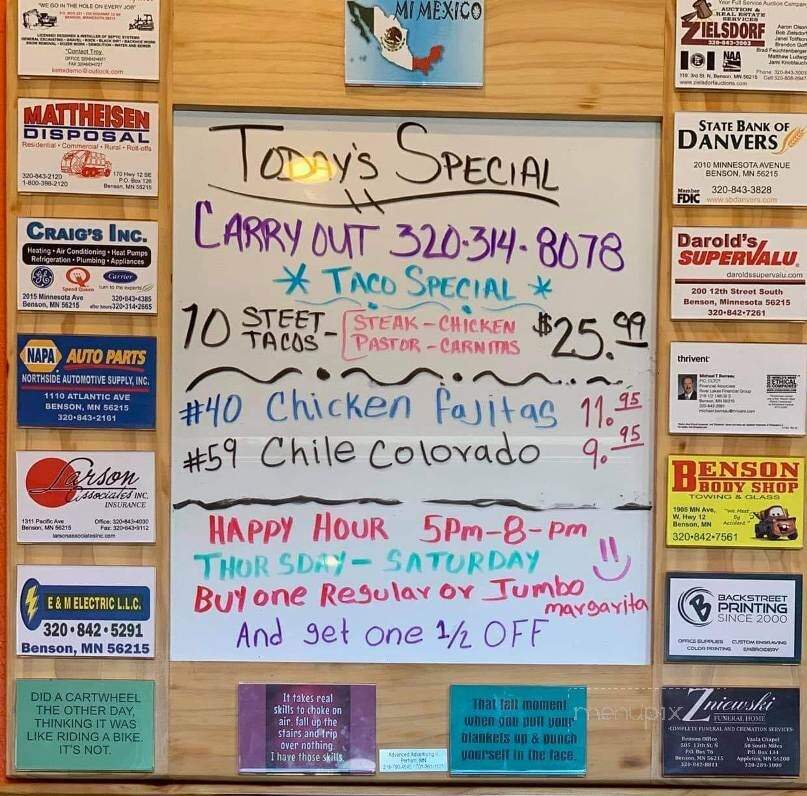 "WE GO IN THE HOLE ON EVERY JOB"
LICENSED DESIGNER & INSTALLER OF SEPTIC SYSTEMS
Contact Troy
MATTHEISEN
DISPOSAL
Residential • Commercial • Rural • Roll-offs
320-843-2120
1-800-398-2120
170 Hwy 12 SE
P.O. Box 126
Benson, MN 56215
CRAIG'S INC.
Heating • Air Conditioning • Heat Pumps
Refrigeration • Plumbing • Appliances
GE
Speed Queen
Carrier
turn to the experts
2015 Minnesota Ave
Benson, MN 56215
320•843•4385
after hours 320•314•2665
NAPA AUTO PARTS
NORTHSIDE AUTOMOTIVE SUPPLY, INC.
1110 ATLANTIC AVE
BENSON, MN 56215
320•843•2161
Larson
Associates INC.
INSURANCE
1311 Pacific Ave
Benson, MN 56215
Office: 320-843-4030
Fax: 320-843-9112
larsonassociatesinc.com
E & M ELECTRIC L.L.C.
320•842•5291
Benson, MN 56215
DID A CARTWHEEL
THE OTHER DAY,
THINKING IT WAS
LIKE RIDING A BIKE.
IT'S NOT.
MI MEXICO
TODAY'S SPECIAL
CARRY OUT 320-314-8078
* TACO SPECIAL *
10 STEET TACOS - STEAK - CHICKEN $25.99
PASTOR - CARNITAS
#40 Chicken Fajitas 11.95
#59 Chile Colorado 9.95
HAPPY HOUR 5Pm-8-pm
THORSDAY - SATURDAY
BUY one Regular or Jumbo
margarita
And get one 1/2 OFF
It takes real
skills to choke on
air, fall up the
stairs and trip
over nothing.
I have those skills.
Advanced Advertising
Perham, MN
That fall moment
when you pull your
blankets up & punch
yourself in the face.
menupix
Your Full Service Auction Company
AUCTION &
REAL ESTATE
SERVICES
ZIELSDORF
320-843-3003
NAA
119 3rd St. N, Benson, MN 56215
www.zielsdorfauctions.com
STATE BANK OF
DANVERS
2010 MINNESOTA AVENUE
BENSON, MN 56215
Member
FDIC
320-843-3828
www.sbdanvers.com
Darold's
SUPERVALU
daroldssupervalu.com
200 12th Street South
Benson, Minnesota 56215
320•842•7261
thrivent
BENSON
BODY SHOP
TOWING & GLASS
1985 MN Ave,
W. Hwy 12
Benson, MN
"We Meet
By
Accident"
320•842•7561
BACKSTREET
PRINTING
SINCE 2000
OFFICE SUPPLIES CUSTOM ENGRAVING
COLOR PRINTING EMBROIDERY
Zniewski
FUNERAL HOME
COMPLETE FUNERAL AND CREMATION SERVICES
Benson Office
505 13th St. N
P.O. Box 76
Benson, MN 56215
Vaala Chapel
50 South Miles
P.O. Box 134
Appleton, MN 56208